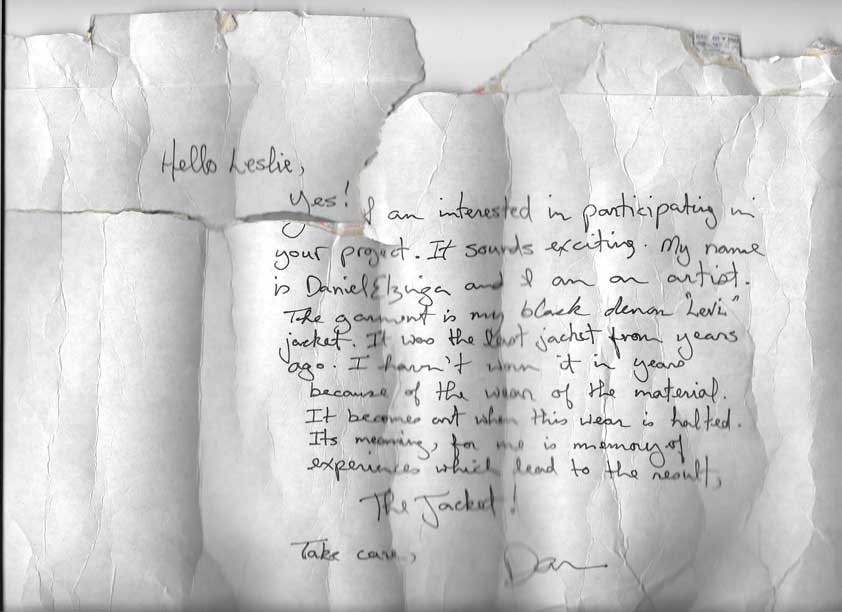 Hello Leslie,
Yes! I am interested in participating in
your project. It sounds exciting. My name
is Daniel Elzinga and I am an artist.
The garment is my black denim "Levi"
jacket. It was the last jacket from years
ago. I haven't worn it in years
because of the wear of the material.
It becomes art when this wear is halted.
Its meaning, for me is memory of
experiences which lead to the result,
The Jacket!
Take care, Dan